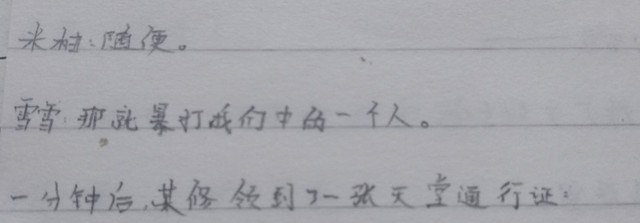 米柚:随便。
雪雪:那就暴打我们中的一个人。
一分钟后,某修领到了一张天堂通行证: